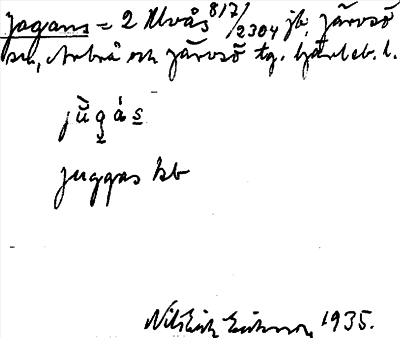 Jogans = 2 Älvås 817/2304 jb, Järvsö
sn, Arbrå och Järvsö tg. Gävleb. l.
jùgás
juggas kb
Nils Erik Eriksson, 1935.